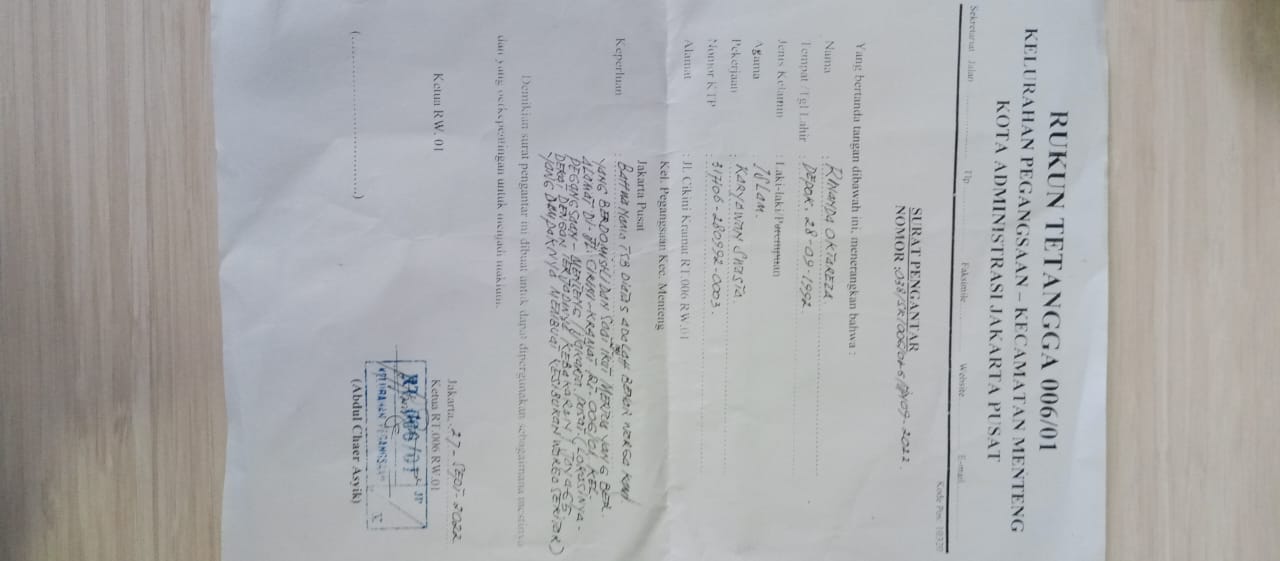 RUKUN TETANGGA 006/01
KELURAHAN PEGANGSAAN – KECAMATAN MENTENG
KOTA ADMINISTRASI JAKARTA PUSAT
Sekretariat Jalan Tlp. Faksimile Website E-mail
Kode Pos. 10320
SURAT PENGANTAR
NOMOR :038/SK/006/01
Yang bertanda tangan dibawah ini, menerangkan bahwa :
Nama : RINANDA OKTAREZA.
Tempat /Tgl Lahir : DEPOK. 28-09-1992.
Jenis Kelamin : Laki-laki/Perempuan
Agama : ISLAM.
Pekerjaan : KARYAWAN SWASTA.
Nomor KTP : 317106-280992-0003.
Alamat : Jl. Cikini Kramat RT.006 RW.01
Kel. Pegangsaan Kec. Menteng
Jakarta Pusat
Keperluan : BAHWA NAMA TSB DIATAS ADALAH BENAR WARGA KAMI
YANG BERDOMISILI DAN SAAT INI YANG BER-
ALAMAT DI. JL. CIKINI-KRAMAT RT-006/01 KEL.
PEGANGSAAN-MENTENG (JAKARTA PUSAT (LOKASINYA-
DEKAT DENGAN TERJADINYA KEBAKARAN
YANG DAMPAKNYA MEMBUAT KESIBUKAN WARGA SEKITAR)
Demikian surat pengantar ini dibuat untuk dapat dipergunakan sebagaimana mestinya
dan yang berkepentingan untuk menjadi maklum.
Jakarta, 27-SEPT-2022
Ketua RW. 01 Ketua RT.006 RW.01
RT. 006/01
KELURAHAN PEGANGSAAN
(........................) (Abdul Chaer Asyik)